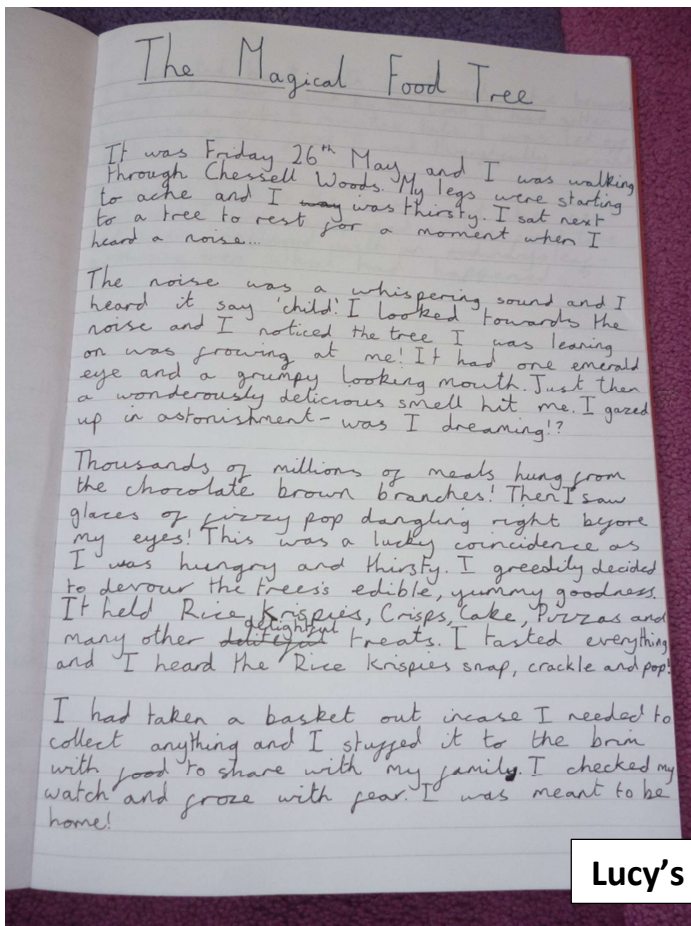 The Magical Food Tree
It was Friday 26th May and I was walking
through Chessell Woods. My legs were starting
to ache and I way was thirsty. I sat next
to a tree to rest for a moment when I
heard a noise...
The noise was a whispering sound and I
heard it say 'child'. I looked towards the
noise and I noticed the tree I was leaning
on was frowing at me! It had one emerald
eye and a grumpy looking mouth. Just then
a wonderously delicious smell hit me. I gazed
up in astonishment - was I dreaming!?
Thousands of millions of meals hung from
the chocolate brown branches! Then I saw
glaces of fizzy pop dangling right before
my eyes! This was a lucky coincidence as
I was hungry and thirsty. I greedily decided
to devour the trees's edible, yummy goodness.
It held Rice Krispies, Crisps, Cake, Pizzas and
delightful
many other deliteful treats. I tasted everything
and I heard the Rice Krispies snap, crackle and pop!
I had taken a basket out incase I needed to
collect anything and I stuffed it to the brim
with food to share with my family. I checked my
watch and froze with fear. I was meant to be
home!
Lucy's